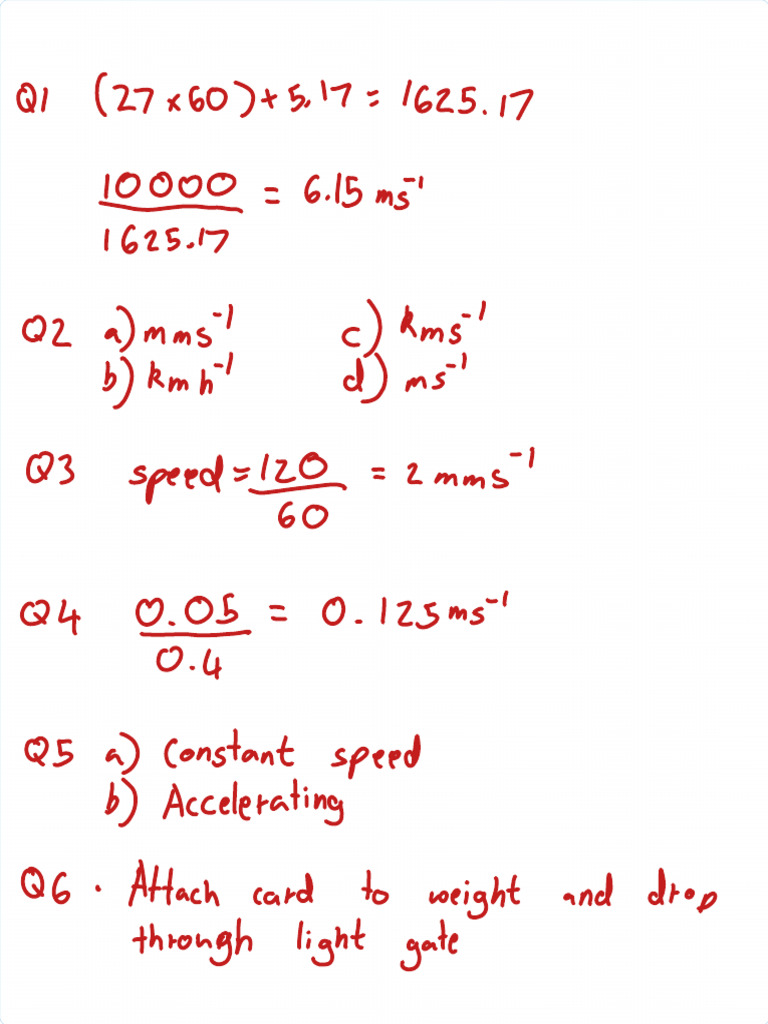 Q1 (27 × 60) + 5.17 = 1625.17
10000 / 1625.17 = 6.15 ms⁻¹
Q2 a) mms⁻¹ c) kms⁻¹
b) kmh⁻¹ d) ms⁻¹
Q3 speed = 120 / 60 = 2 mms⁻¹
Q4 0.05 / 0.4 = 0.125 ms⁻¹
Q5 a) Constant speed
b) Accelerating
Q6 · Attach card to weight and drop
through light gate